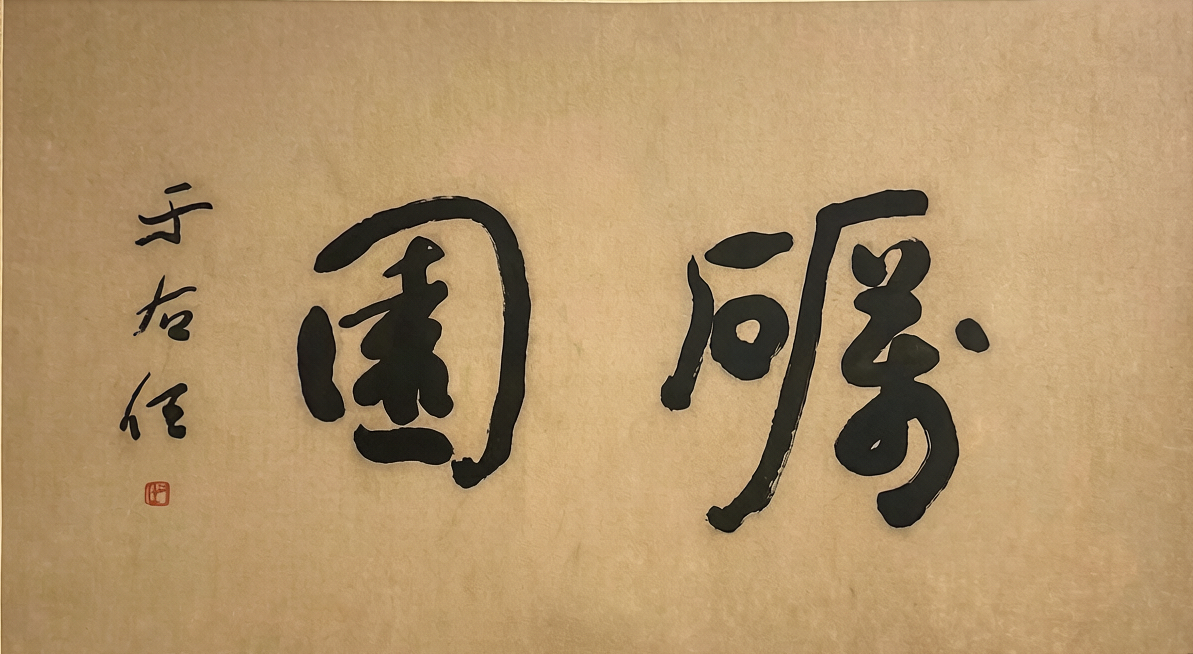 礪園
于右任